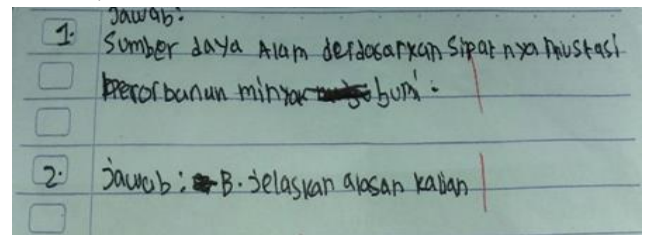 Jawab:
1. Sumber daya Alam derdasarkan Sipat nya
perorbanun minyak bumi:
2. Jawab: B. Jelaskan alasan kalian